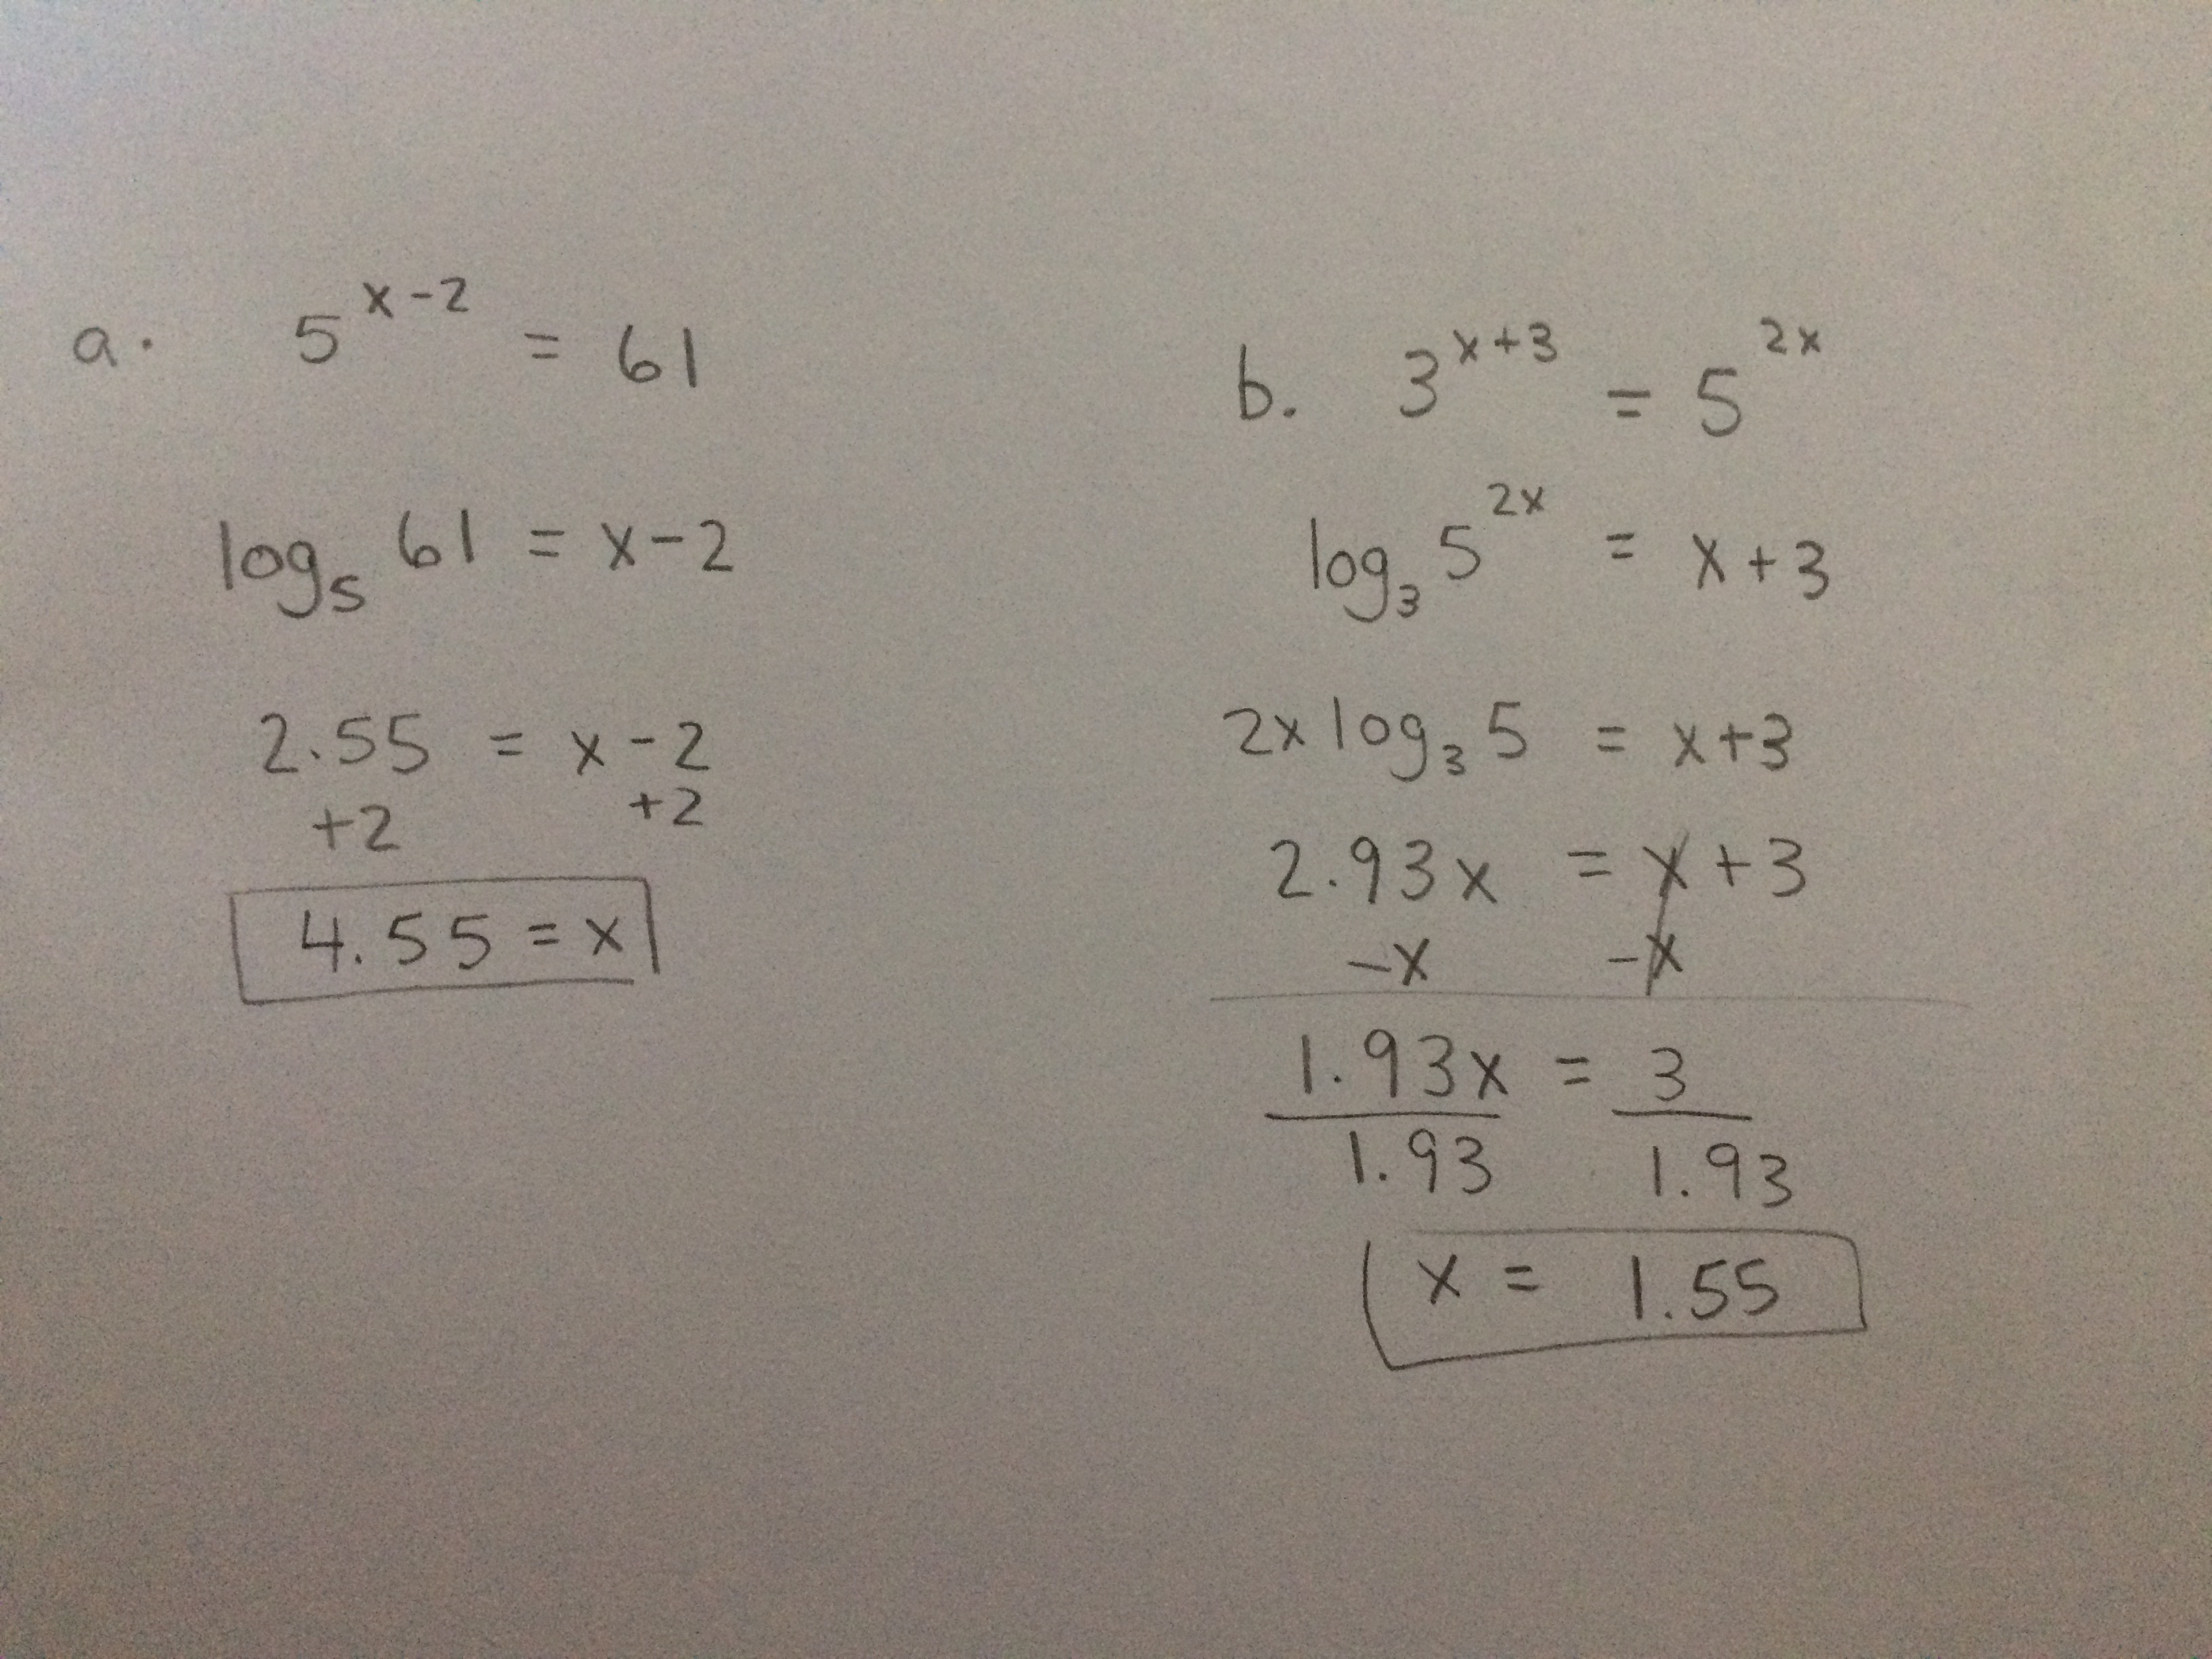 a. 5^{x-2} = 61
log_5 61 = x-2
2.55 = x-2
+2 +2
4.55 = x
b. 3^{x+3} = 5^{2x}
log_3 5^{2x} = x+3
2x log_3 5 = x+3
2.93x = x+3
-x -x
1.93x = 3
1.93 1.93
x = 1.55